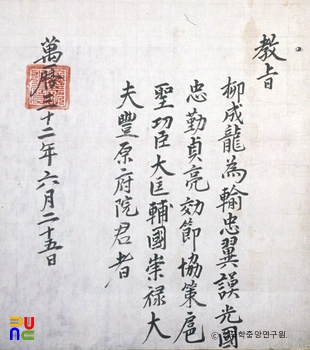 教旨
柳成龍為輸忠翼謨光國
忠勤貞亮効節協策扈
聖功臣大匡輔國崇禄大
夫豐原府院君者
萬曆三十二年六月二十五日
ⓒ 한국학중앙연구원